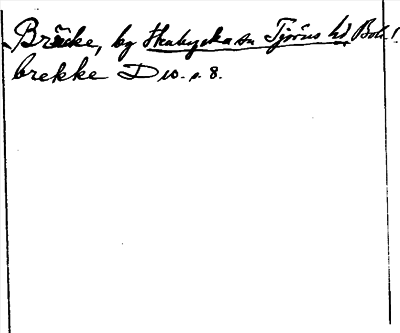 Bräcke, by Stenkyrka sn Tjörns hd Boh.!
brekke D 10. s. 8.